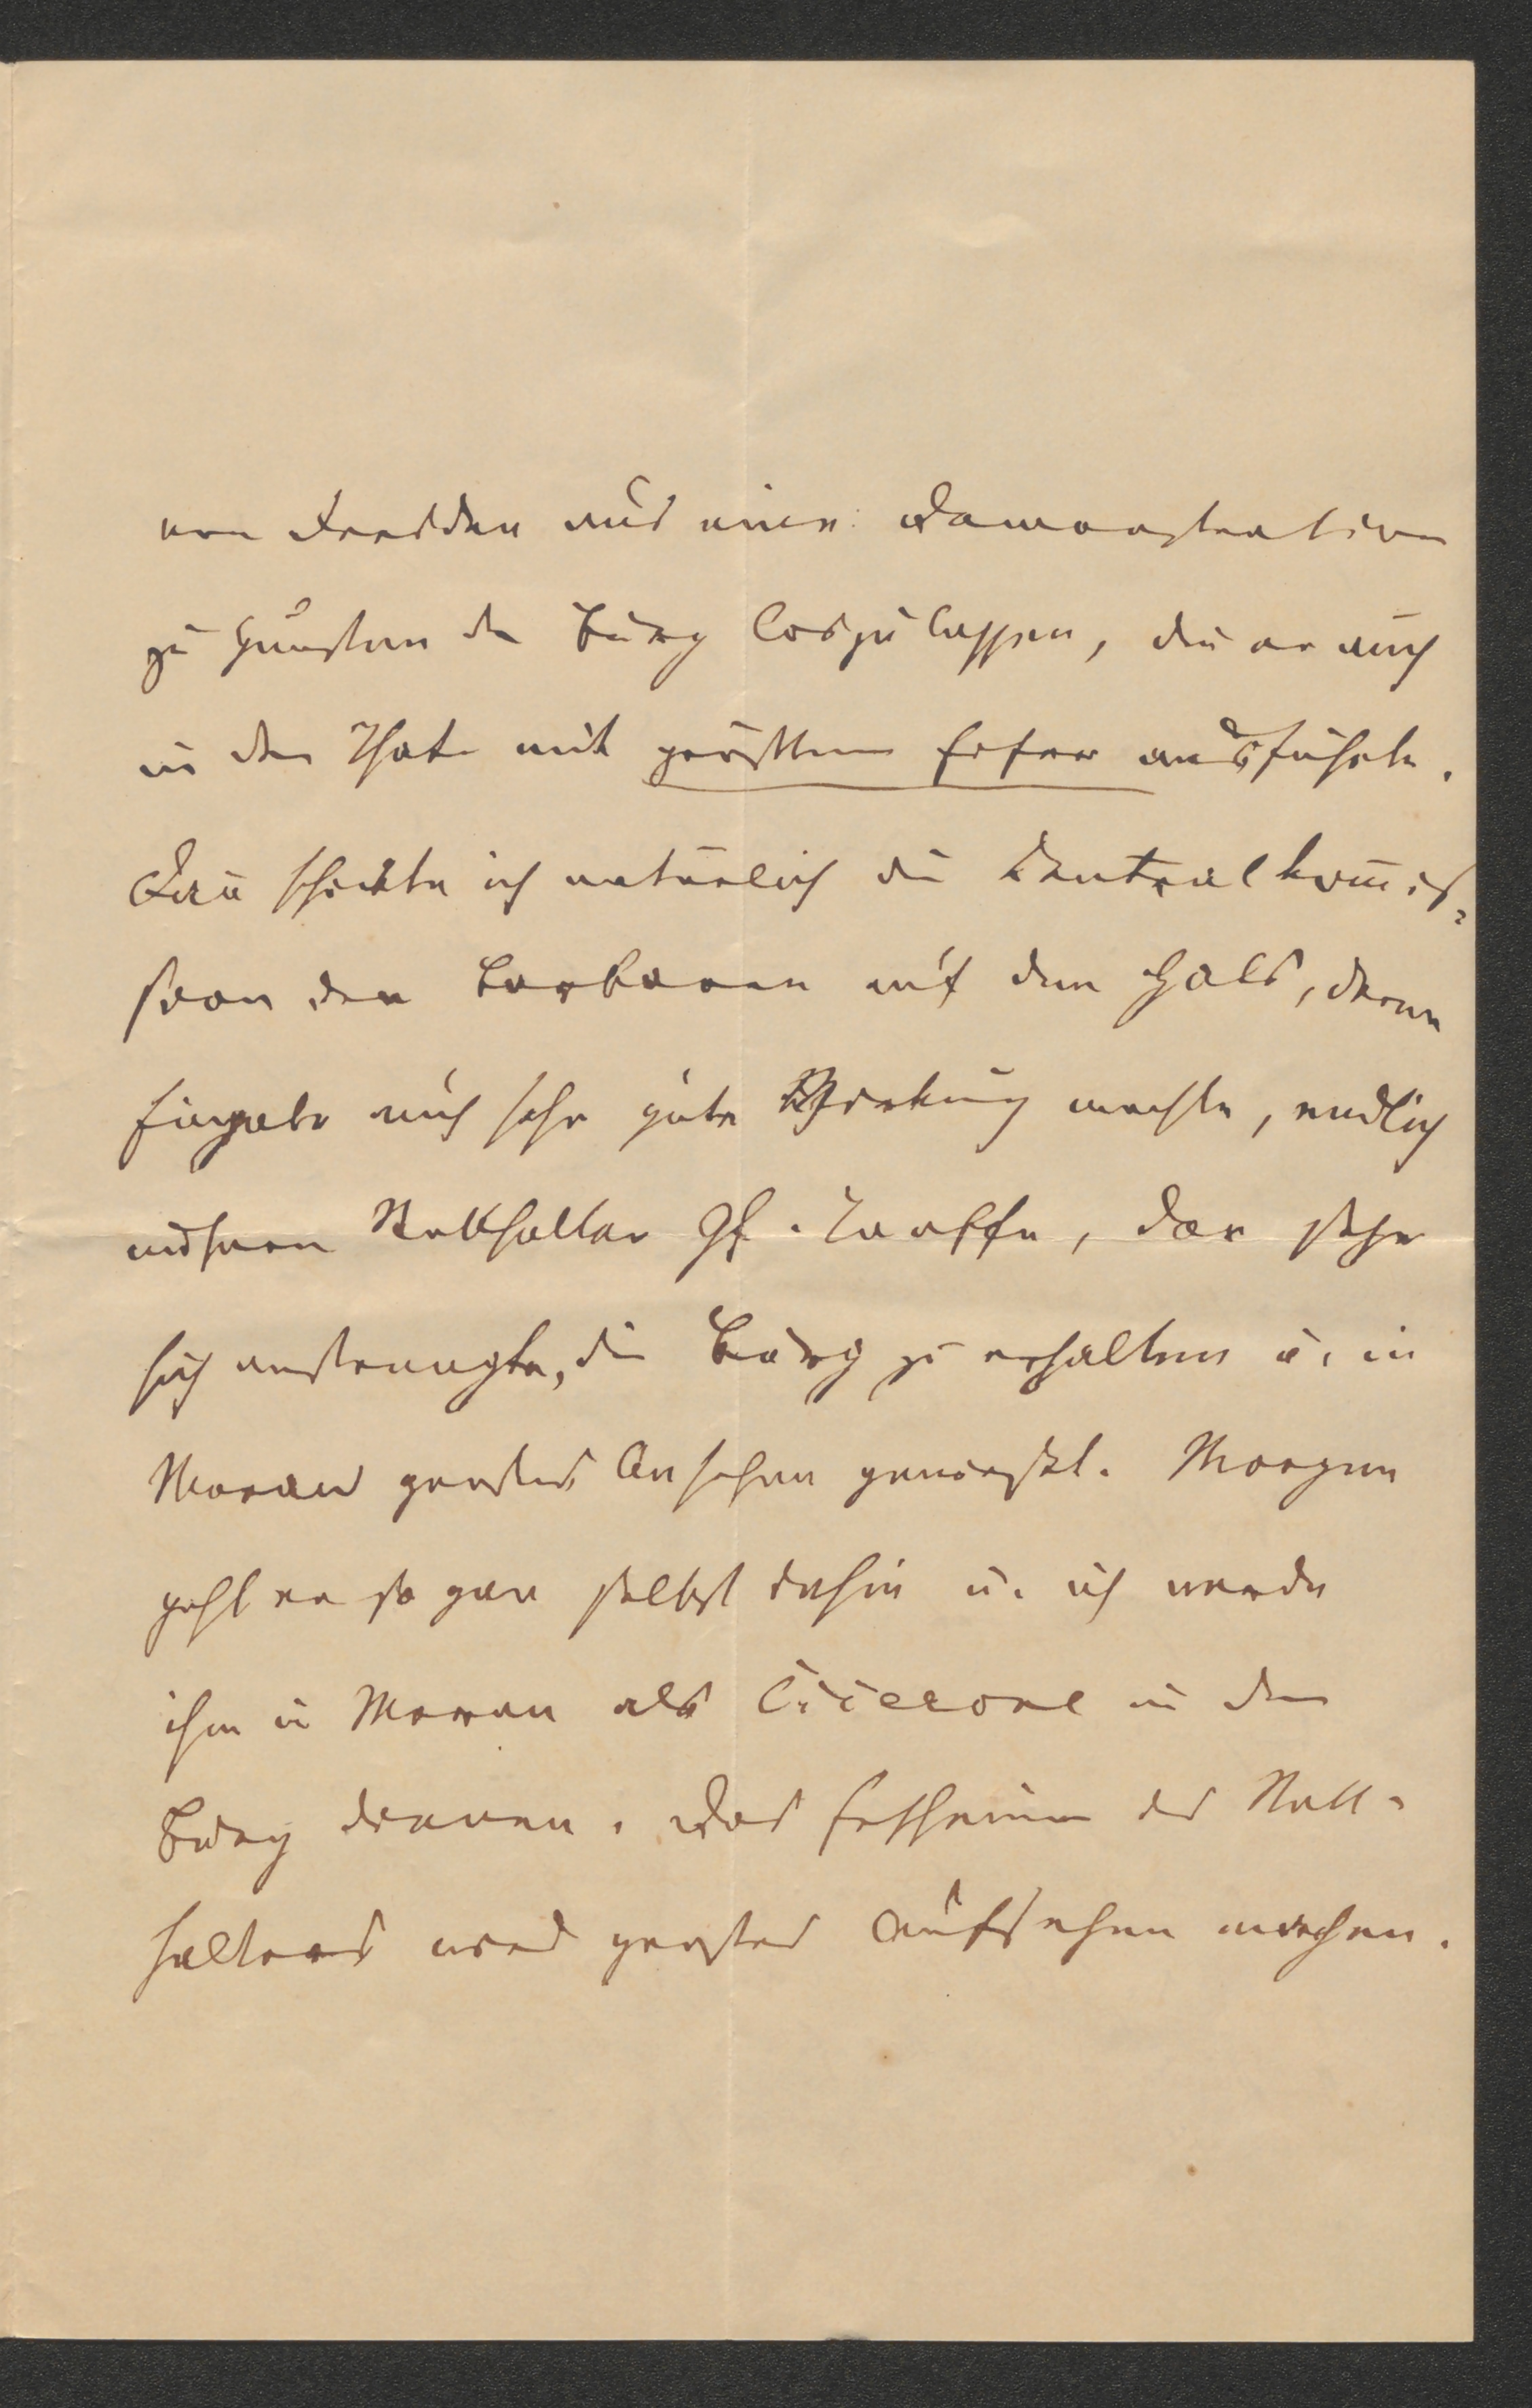 von Dresden aus eine Demonstration
zu Gunsten der Burg loszulassen, die er auch
in der That mit größtem Erfer ausführte.
Dan schickte ich natürlich die Zentralkom̅is-
sion den Barbaren auf den Hals, deren
Eingabe auch sehr gute Wirkung machte, endlich
unseren Statthalter Gf. Taaffe, der sehr
sich anstrengte, die Burg zu erhalten u. in
Meran großes Ansehen genießt. Morgen
geht er so gar selbst dahin u. ich werde
ihm in Meran als Cicerone in der
Burg dienen. Das Erscheinen des Statt-
halters wird großes Aufsehen machen.